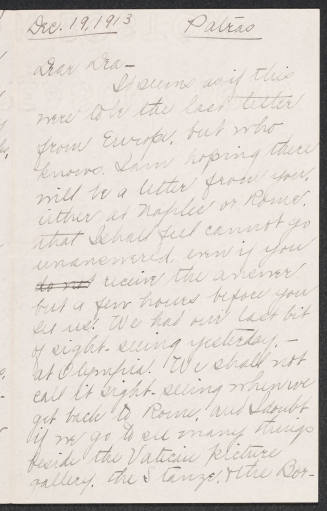 Dec. 19, 1913 Patras
Dear Dea—
It seems as if this
were to be the last letter
from Europe, but who
knows. I am hoping there
will be a letter from you,
either at Naples or Rome,
that I shall feel cannot go
unanswered even if you
do not receive the answer
but a few hours before you
see us! We had our last bit
of sight-seeing yesterday,—
at Olympia! We shall not
call it sight-seeing when we
get back to Rome, and I doubt
if we go to see many things
beside the Vatican picture
gallery, the Stanze, & the Bor-